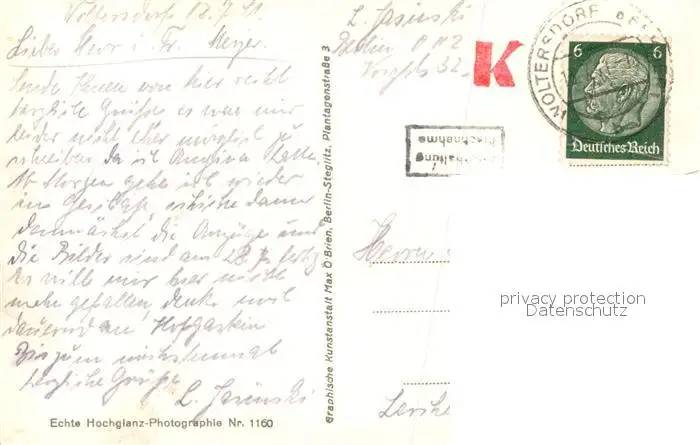 Woltersdorf 18.7.41.
Lieber Herr u. Fr. Meyer.
Sende Ihnen von hier recht
herzliche Grüße es war mir
leider nicht eher möglich zu
schreiben da ich Angina hatte.
Morgen gehe ich wieder
ins Geschäft, schicke dann
demnächst die Anzüge und
die Bilder sind am 28.7. fertig
Es will mir hier nicht
mehr gefallen, denke noch
dauernd an Hofgastein
Bis zum nächstenmal
herzliche Grüße
L. Jasinski
Echte Hochglanz-Photographie Nr. 1160
Graphische Kunstanstalt Max O'Brien, Berlin-Steglitz, Plantagenstraße 3
L. Jasinski
Berlin O 112
Voigtstr. 32
K
WOLTERSDORF
6 6
Deutsches Reich
Herrn
privacy protection
Datenschutz